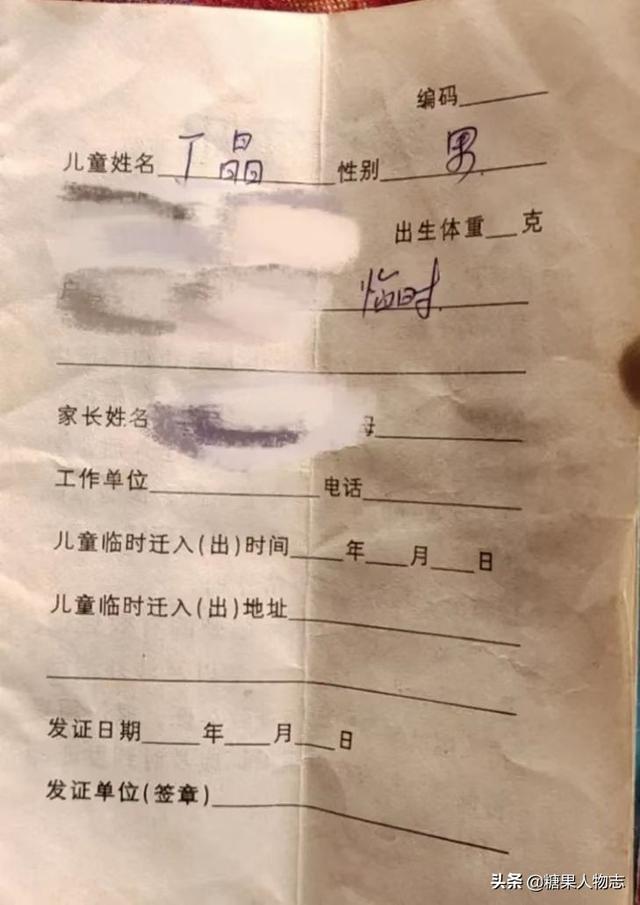 编码
儿童姓名 丁晶 性别 男
出生体重 克
户
临时
家长姓名 母
工作单位 电话
儿童临时迁入(出)时间 年 月 日
儿童临时迁入(出)地址
发证日期 年 月 日
发证单位(签章)
头条 @糖果人物志